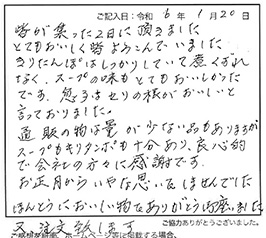 ご記入日：令和 6 年 1 月 20 日
皆が集った2日に頂きました
とてもおいしく皆よろこんでいました
きりたんぽはしっかりしていて煮くずれ
なく、スープの味もとてもおいしかった
です。息子はセリの根がおいしいと
言っておりました。
通販の物は量が少ない品もありますが
スープもキリタンポも十分あり、良心的
で会社の方々に感謝です。
お正月からいやな思いをしませんでした
ほんとうにおいしい物をありがとうございました。
又、注文致します
ご協力ありがとうございました。